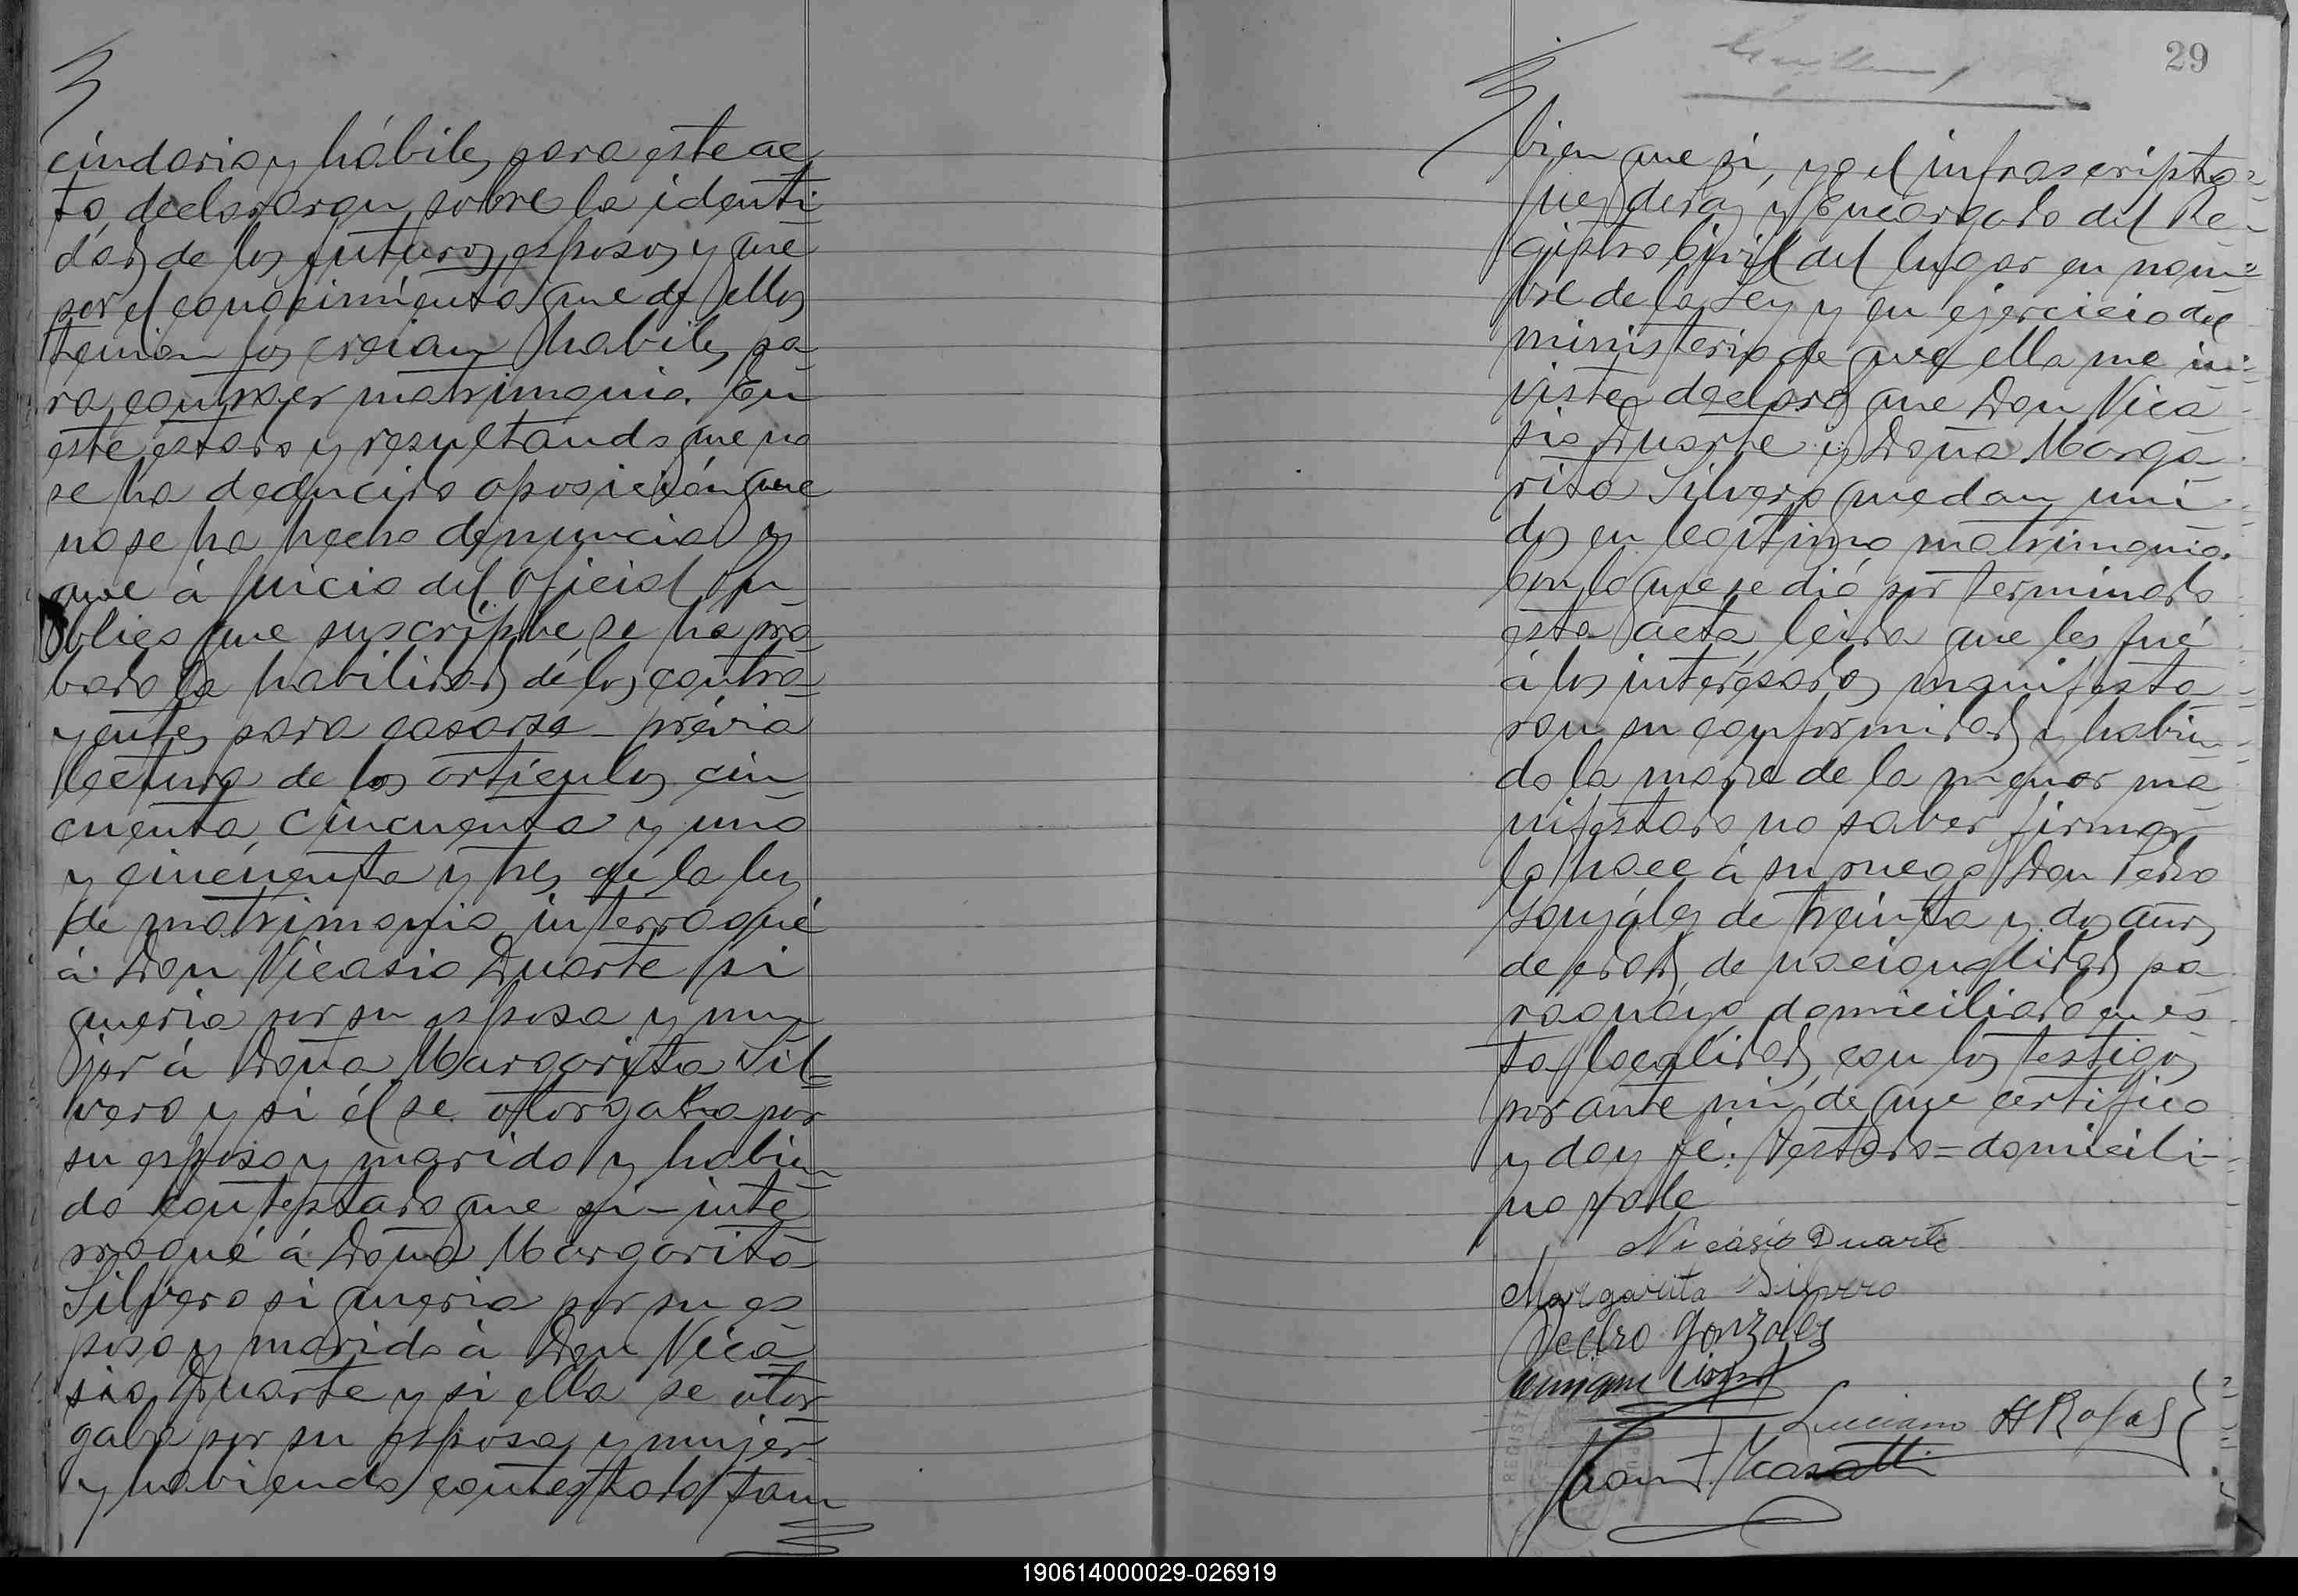 cindario y hábiles para este ac
to, declararon sobre la identi
dad de los futuros esposos y que
por el conocimiento que de ellos
tenian los creian habiles pa
ra contraer matrimonio. En
este estado y resultando que no
se ha deducido oposición que
no se ha hecho denuncia y
que á juicio del oficial pú
blico que suscribe se ha pro
bado la habilidad de los contra
yentes para casarse - prévia
lectura de los artículos cin
cuenta, cincuenta y uno
y cincuenta y tres de la ley
de matrimonio interrogué
á Don Nicasio Duarte si
queria por su esposa y mu
jer á Doña Margarita Sil=
vero y si él se otorgaba por
su esposo y marido y habien
do contestado que si - inte
rrogué á Doña Margarita
Silvero si queria por su es
poso y marido á Don Nica
sio Duarte y si ella se otor
gaba por su esposa y mujer
y habiendo contestado tam
29
bien que si, yo el infrascripto=
Juez de Paz y Encargado del Re-
gistro Civil del lugar en nom=
bre de la Ley y en ejercicio del
ministerio de que ella me in=
viste declaro que Don Nica
sio Duarte y Doña Marga
rita Silvero quedan uni
dos en legítimo matrimonio.
Con lo que se dió por terminado
esta acta, leida que les fué
á los interesados manifesta
ron su conformidad y habien
do la madre de la menor ma
nifestado no saber firmar
lo hace á su ruego Don Pedro
Gonzáles de treinta y dos años
de edad, de nacionalidad pa
raguayo domiciliado en es
ta localidad, con los testigos
por ante mí, de que certifico
y doy fé. Testado = domicili-
no vale
Nicasio Duarte
Margarita Silvero
Pedro Gonzales
Luciano H Rojas
Juan
190614000029-026919